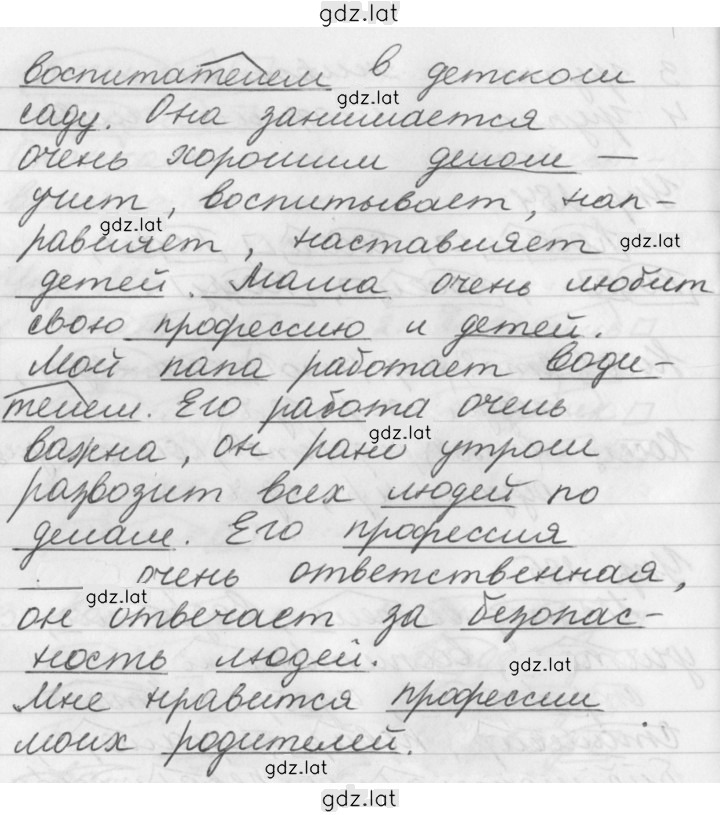 gdz.lat
воспитателем в детском
gdz.lat
саду. Она занимается
очень хорошим делом –
учит, воспитывает, нап-
gdz.lat
равляет, наставляет gdz.lat
детей. Маша очень любит
свою профессию и детей.
Мой папа работает води-
телем. Его работа очень
gdz.lat
важна, он рано утром
развозит всех людей по
делам. Его профессия
очень ответственная,
gdz.lat
он отвечает за безопас-
ность людей. gdz.lat
Мне нравится профессии
моих родителей.
gdz.lat
gdz.lat